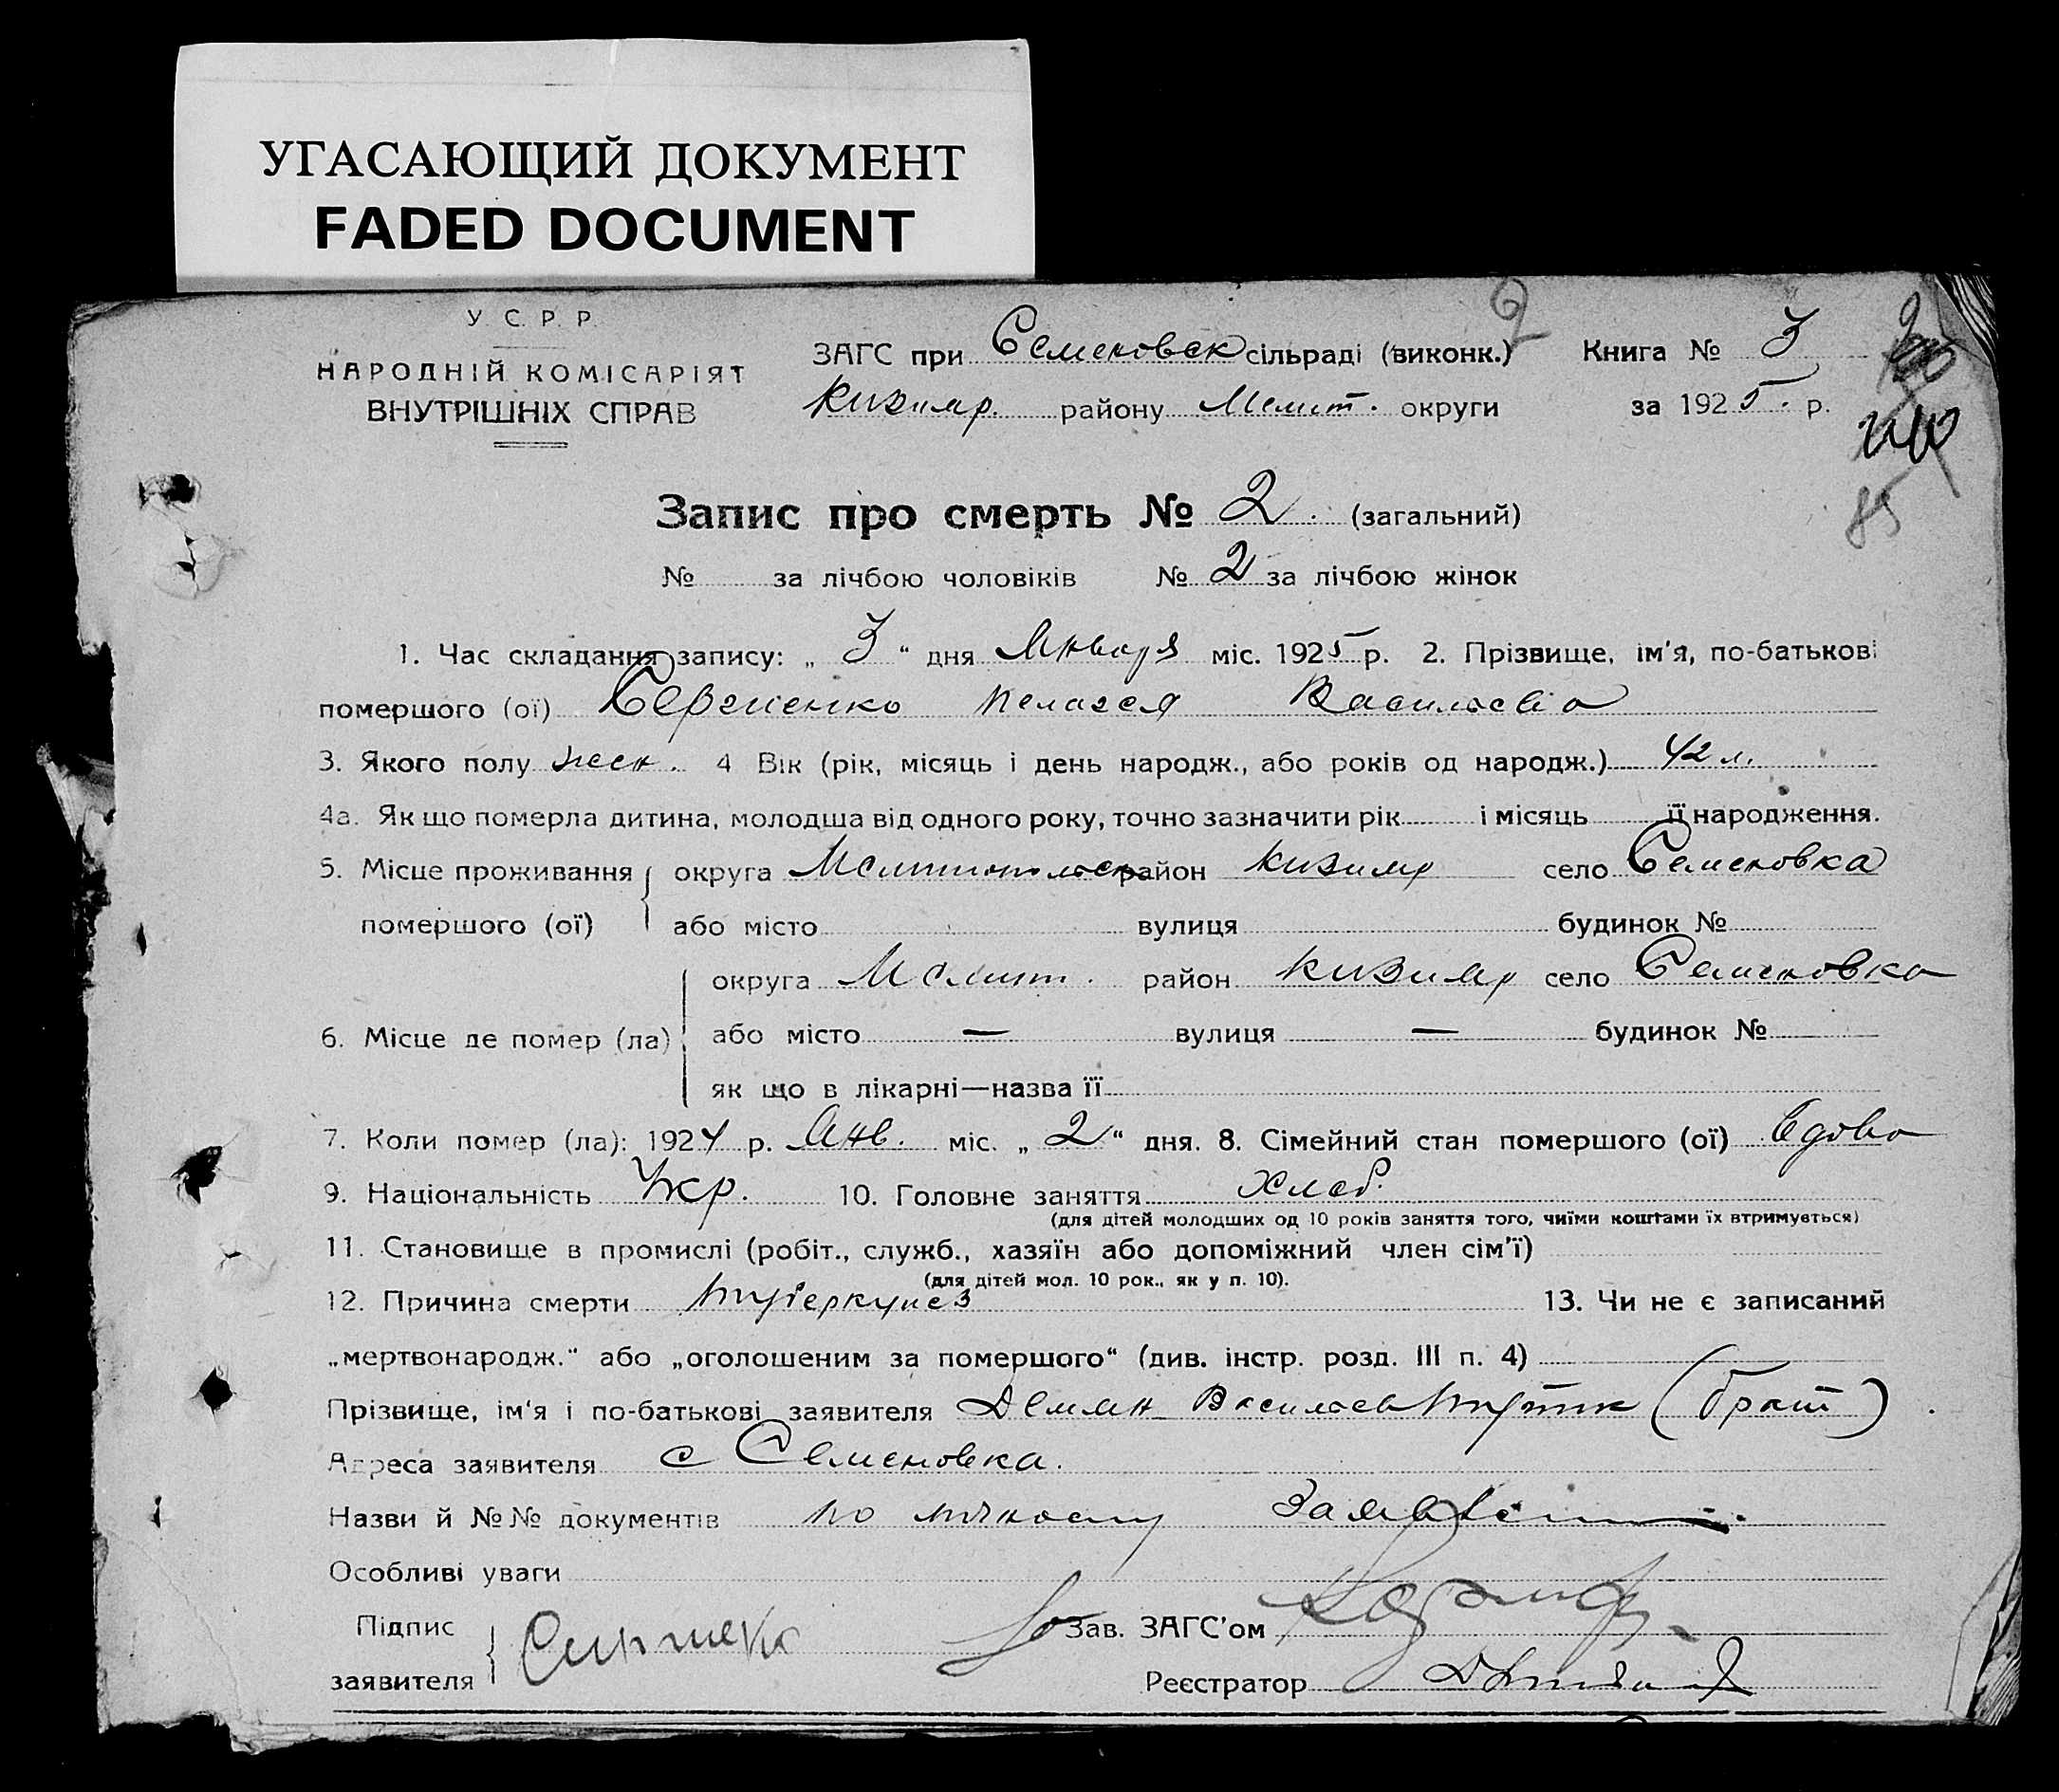 УГАСАЮЩИЙ ДОКУМЕНТ
FADED DOCUMENT
2
У. С. Р. Р.
НАРОДНІЙ КОМІСАРІЯТ
ВНУТРІШНІХ СПРАВ
ЗАГС при Семеновск сільраді (виконк.) Книга № 3
Кизияр. району Мелит. округи за 1925. р.
85
Запис про смерть № 2. (загальний)
№ за лічбою чоловіків № 2 за лічбою жінок
1. Час складання запису: „ 3 “ дня Января міс. 1925 р. 2. Прізвище, ім'я, по-батькові
помершого (ої) Сергиенко Пелагея Васильевна
3. Якого полу жен. 4 Вік (рік, місяць і день народж., або років од народж.) 42 л.
4а. Як що померла дитина, молодша від одного року, точно зазначити рік і місяць її народження.
5. Місце проживання помершого (ої) округа Мелитопольск район Кизияр село Семеновка
або місто вулиця будинок №
6. Місце де помер (ла) округа Мелит. район Кизияр село Семеновка
або місто — вулиця — будинок №
як що в лікарні—назва її
7. Коли помер (ла): 1924 р. Янв. міс. „ 2 “ дня. 8. Сімейний стан помершого (ої) вдова
9. Національність Укр. 10. Головне заняття хлеб.
(для дітей молодших од 10 років заняття того, чиїми коштами їх втримується)
11. Становище в промислі (робіт., служб., хазяїн або допоміжний член сім'ї)
(для дітей мол. 10 рок., як у п. 10).
12. Причина смерти туберкулез 13. Чи не є записаний
„мертвонародж.“ або „оголошеним за помершого“ (див. інстр. розд. III п. 4)
Прізвище, ім'я і по-батькові заявителя Демян Васильев (брат)
Адреса заявителя с Семеновка.
Назви й №№ документів по личному
Особливі уваги
Підпис заявителя Зав. ЗАГС'ом
Реєстратор